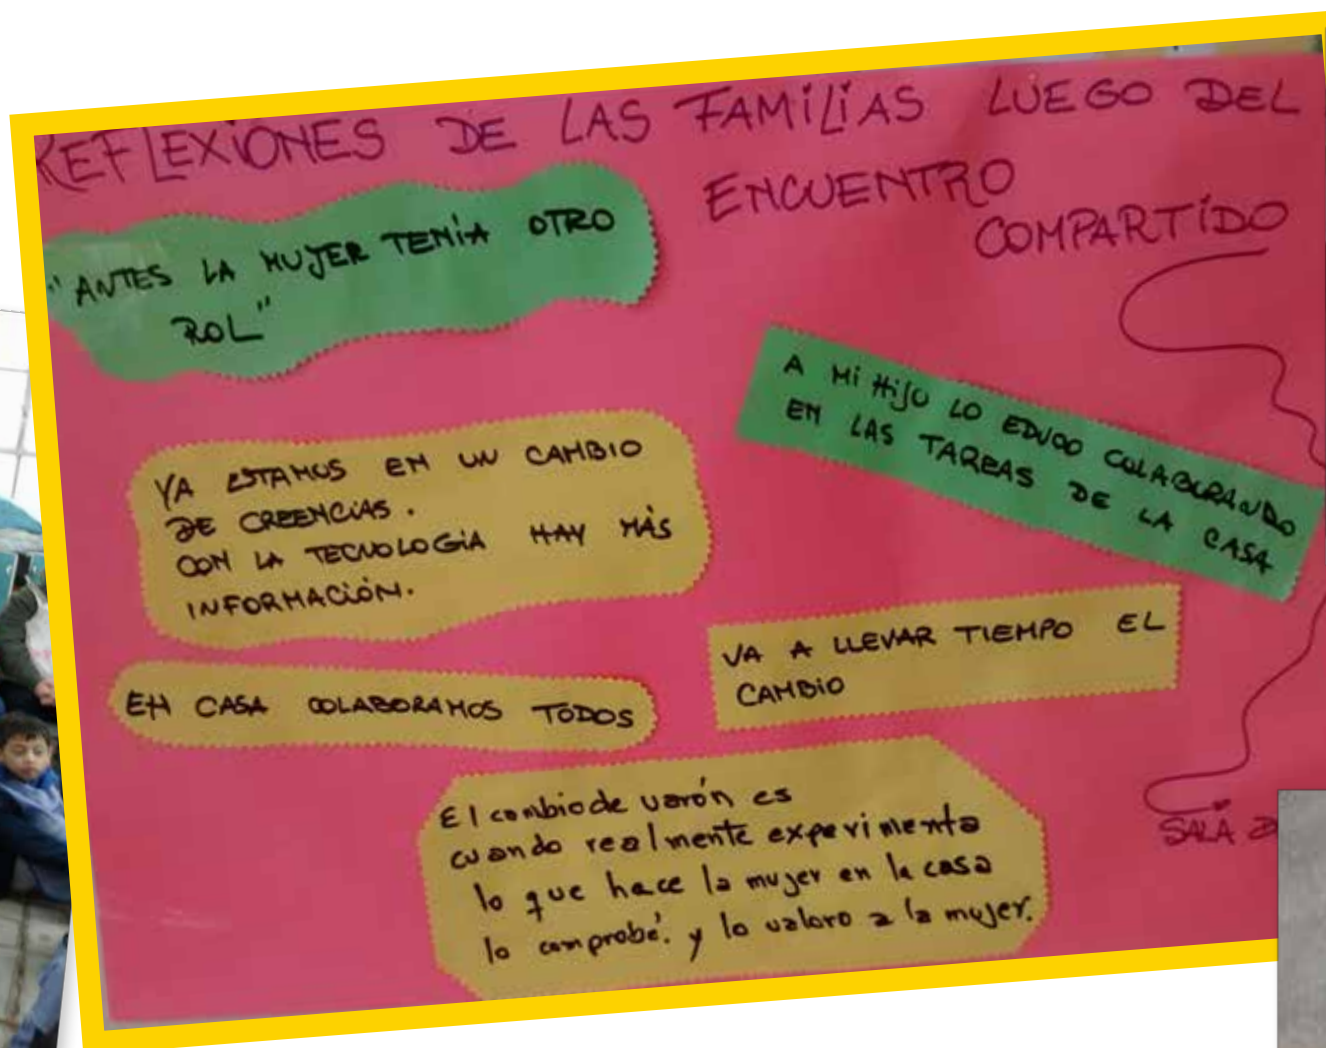 REFLEXIONES DE LAS FAMILIAS LUEGO DEL
ENCUENTRO
COMPARTIDO
"ANTES LA MUJER TENÍA OTRO
ROL"
A MI HIJO LO EDUCO COLABORANDO
EN LAS TAREAS DE LA CASA
YA ESTAMOS EN UN CAMBIO
DE CREENCIAS.
CON LA TECNOLOGÍA HAY MÁS
INFORMACIÓN.
VA A LLEVAR TIEMPO EL
CAMBIO
EN CASA COLABORAMOS TODOS
El cambio de varón es
cuando realmente experimenta
lo que hace la mujer en la casa
lo comprobé. y lo valoro a la mujer.
SALA